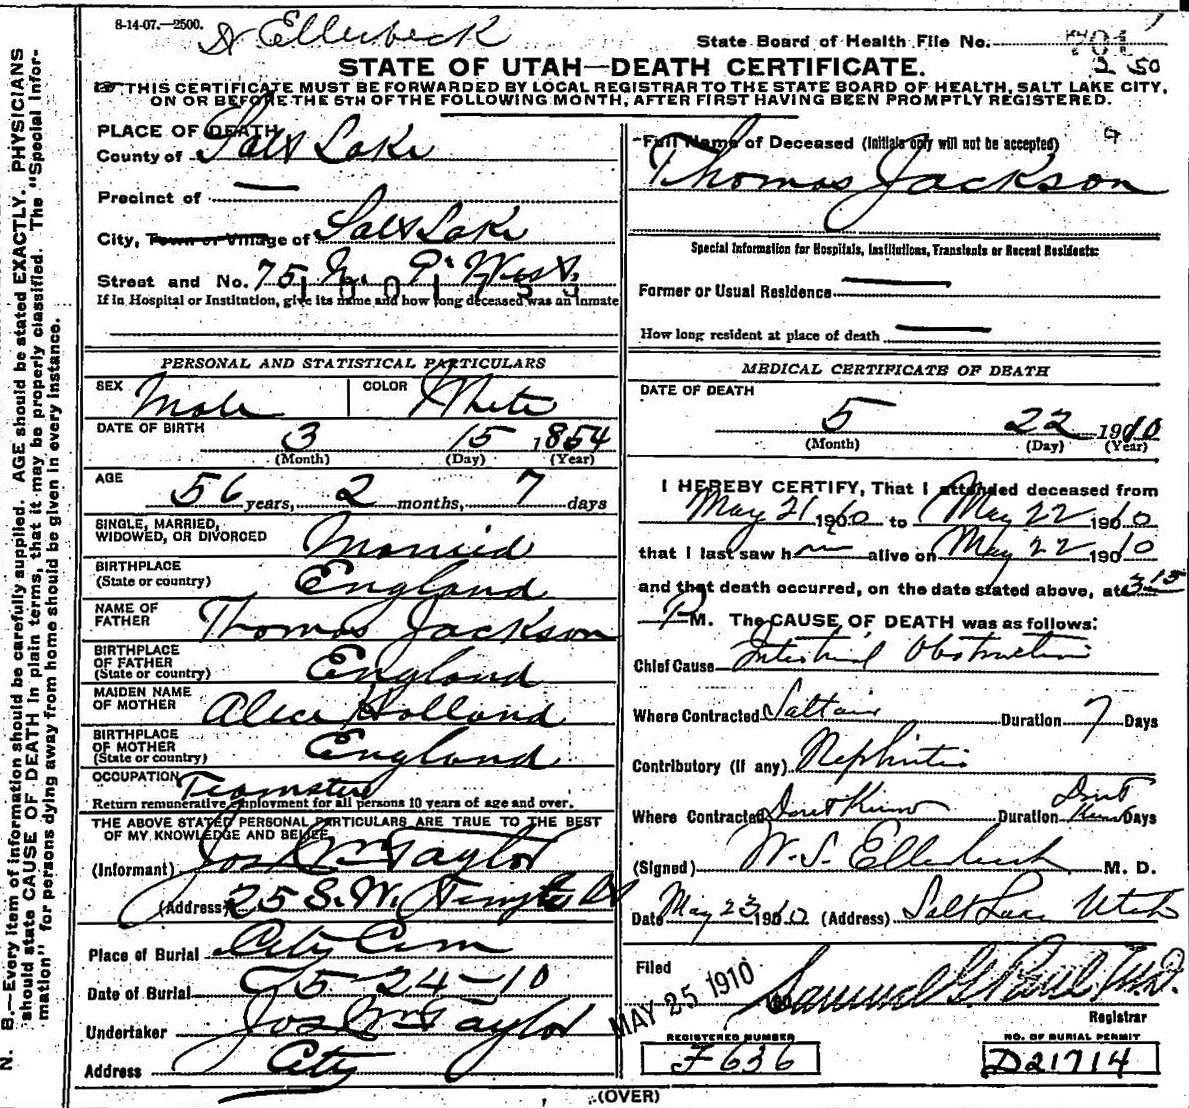 8-14-07.—2500. Dr Ellerbeck
State Board of Health File No. 701
2 50
STATE OF UTAH—DEATH CERTIFICATE.
THIS CERTIFICATE MUST BE FORWARDED BY LOCAL REGISTRAR TO THE STATE BOARD OF HEALTH, SALT LAKE CITY,
ON OR BEFORE THE 5TH OF THE FOLLOWING MONTH, AFTER FIRST HAVING BEEN PROMPTLY REGISTERED.
PLACE OF DEATH
County of Salt Lake
Precinct of —
City, Town or Village of Salt Lake
Street and No. 75 N. West
If in Hospital or Institution, give its name and how long deceased was an inmate
PERSONAL AND STATISTICAL PARTICULARS
SEX Male COLOR White
DATE OF BIRTH 3 15 1854
(Month) (Day) (Year)
AGE 56 years, 2 months, 7 days
SINGLE, MARRIED,
WIDOWED, OR DIVORCED Married
BIRTHPLACE
(State or country) England
NAME OF
FATHER Thomas Jackson
BIRTHPLACE
OF FATHER
(State or country) England
MAIDEN NAME
OF MOTHER Alice Holland
BIRTHPLACE
OF MOTHER
(State or country) England
OCCUPATION Teamster
Return remunerative employment for all persons 10 years of age and over.
THE ABOVE STATED PERSONAL PARTICULARS ARE TRUE TO THE BEST
OF MY KNOWLEDGE AND BELIEF
(Informant) Jos Wm Taylor
(Address) 25 S. W. Temple
Place of Burial City Cem
Date of Burial 5-24-10
Undertaker Jos Wm Taylor
Address City
Full Name of Deceased (Initials only will not be accepted)
Thomas Jackson
Special Information for Hospitals, Institutions, Transients or Recent Residents:
Former or Usual Residence —
How long resident at place of death —
MEDICAL CERTIFICATE OF DEATH
DATE OF DEATH
5 22 1910
(Month) (Day) (Year)
I HEREBY CERTIFY, That I attended deceased from
May 21 1910 to May 22 1910
that I last saw him alive on May 22 1910
and that death occurred, on the date stated above, at 3 15
P M. The CAUSE OF DEATH was as follows:
Chief Cause Intestinal Obstruction
Where Contracted Saltair Duration 7 Days
Contributory (if any) Nephritis
Where Contracted Dont Know Duration Dont Know Days
(Signed) W. S. Ellerbeck M. D.
Date May 23 1910 (Address) Salt Lake Utah
Filed MAY 25 1910 Samuel G. Paul M.D.
Registrar
REGISTERED NUMBER
F636
NO. OF BURIAL PERMIT
D21714
(OVER)
N. B.—Every item of information should be carefully supplied. AGE should be stated EXACTLY. PHYSICIANS
should state CAUSE OF DEATH in plain terms, that it may be properly classified. The "Special Infor-
mation" for persons dying away from home should be given in every instance.